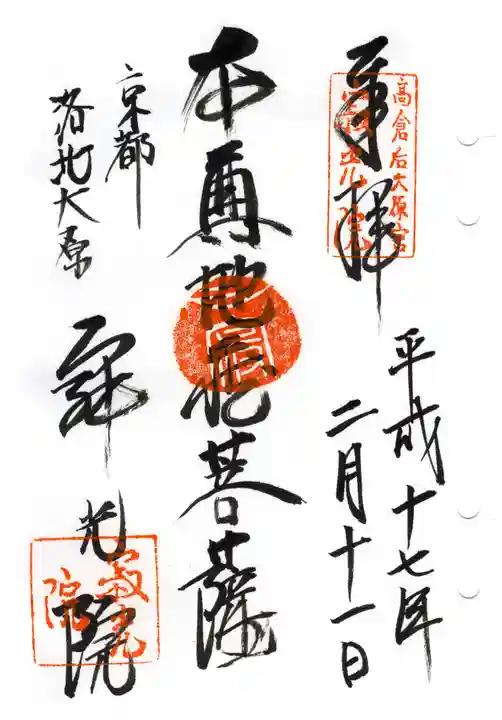 奉拝
高倉后大原宮
寂光院
平成十七年
二月十一日
本尊地蔵菩薩
京都
洛北大原
寂光院
寂光院